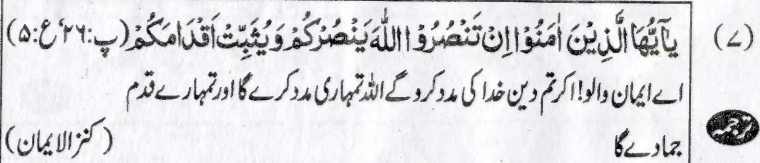 (۷) یٰۤاَیُّهَا الَّذِیْنَ اٰمَنُوْۤا اِنْ تَنْصُرُوا اللّٰهَ یَنْصُرْكُمْ وَ یُثَبِّتْ اَقْدَامَكُمْ (پ:۲۶،ع:۵)
اے ایمان والو! اگر تم دین خدا کی مدد کرو گے اللہ تمہاری مدد کرے گا اور تمہارے قدم
ترجمہ جمادے گا (کنزالایمان)